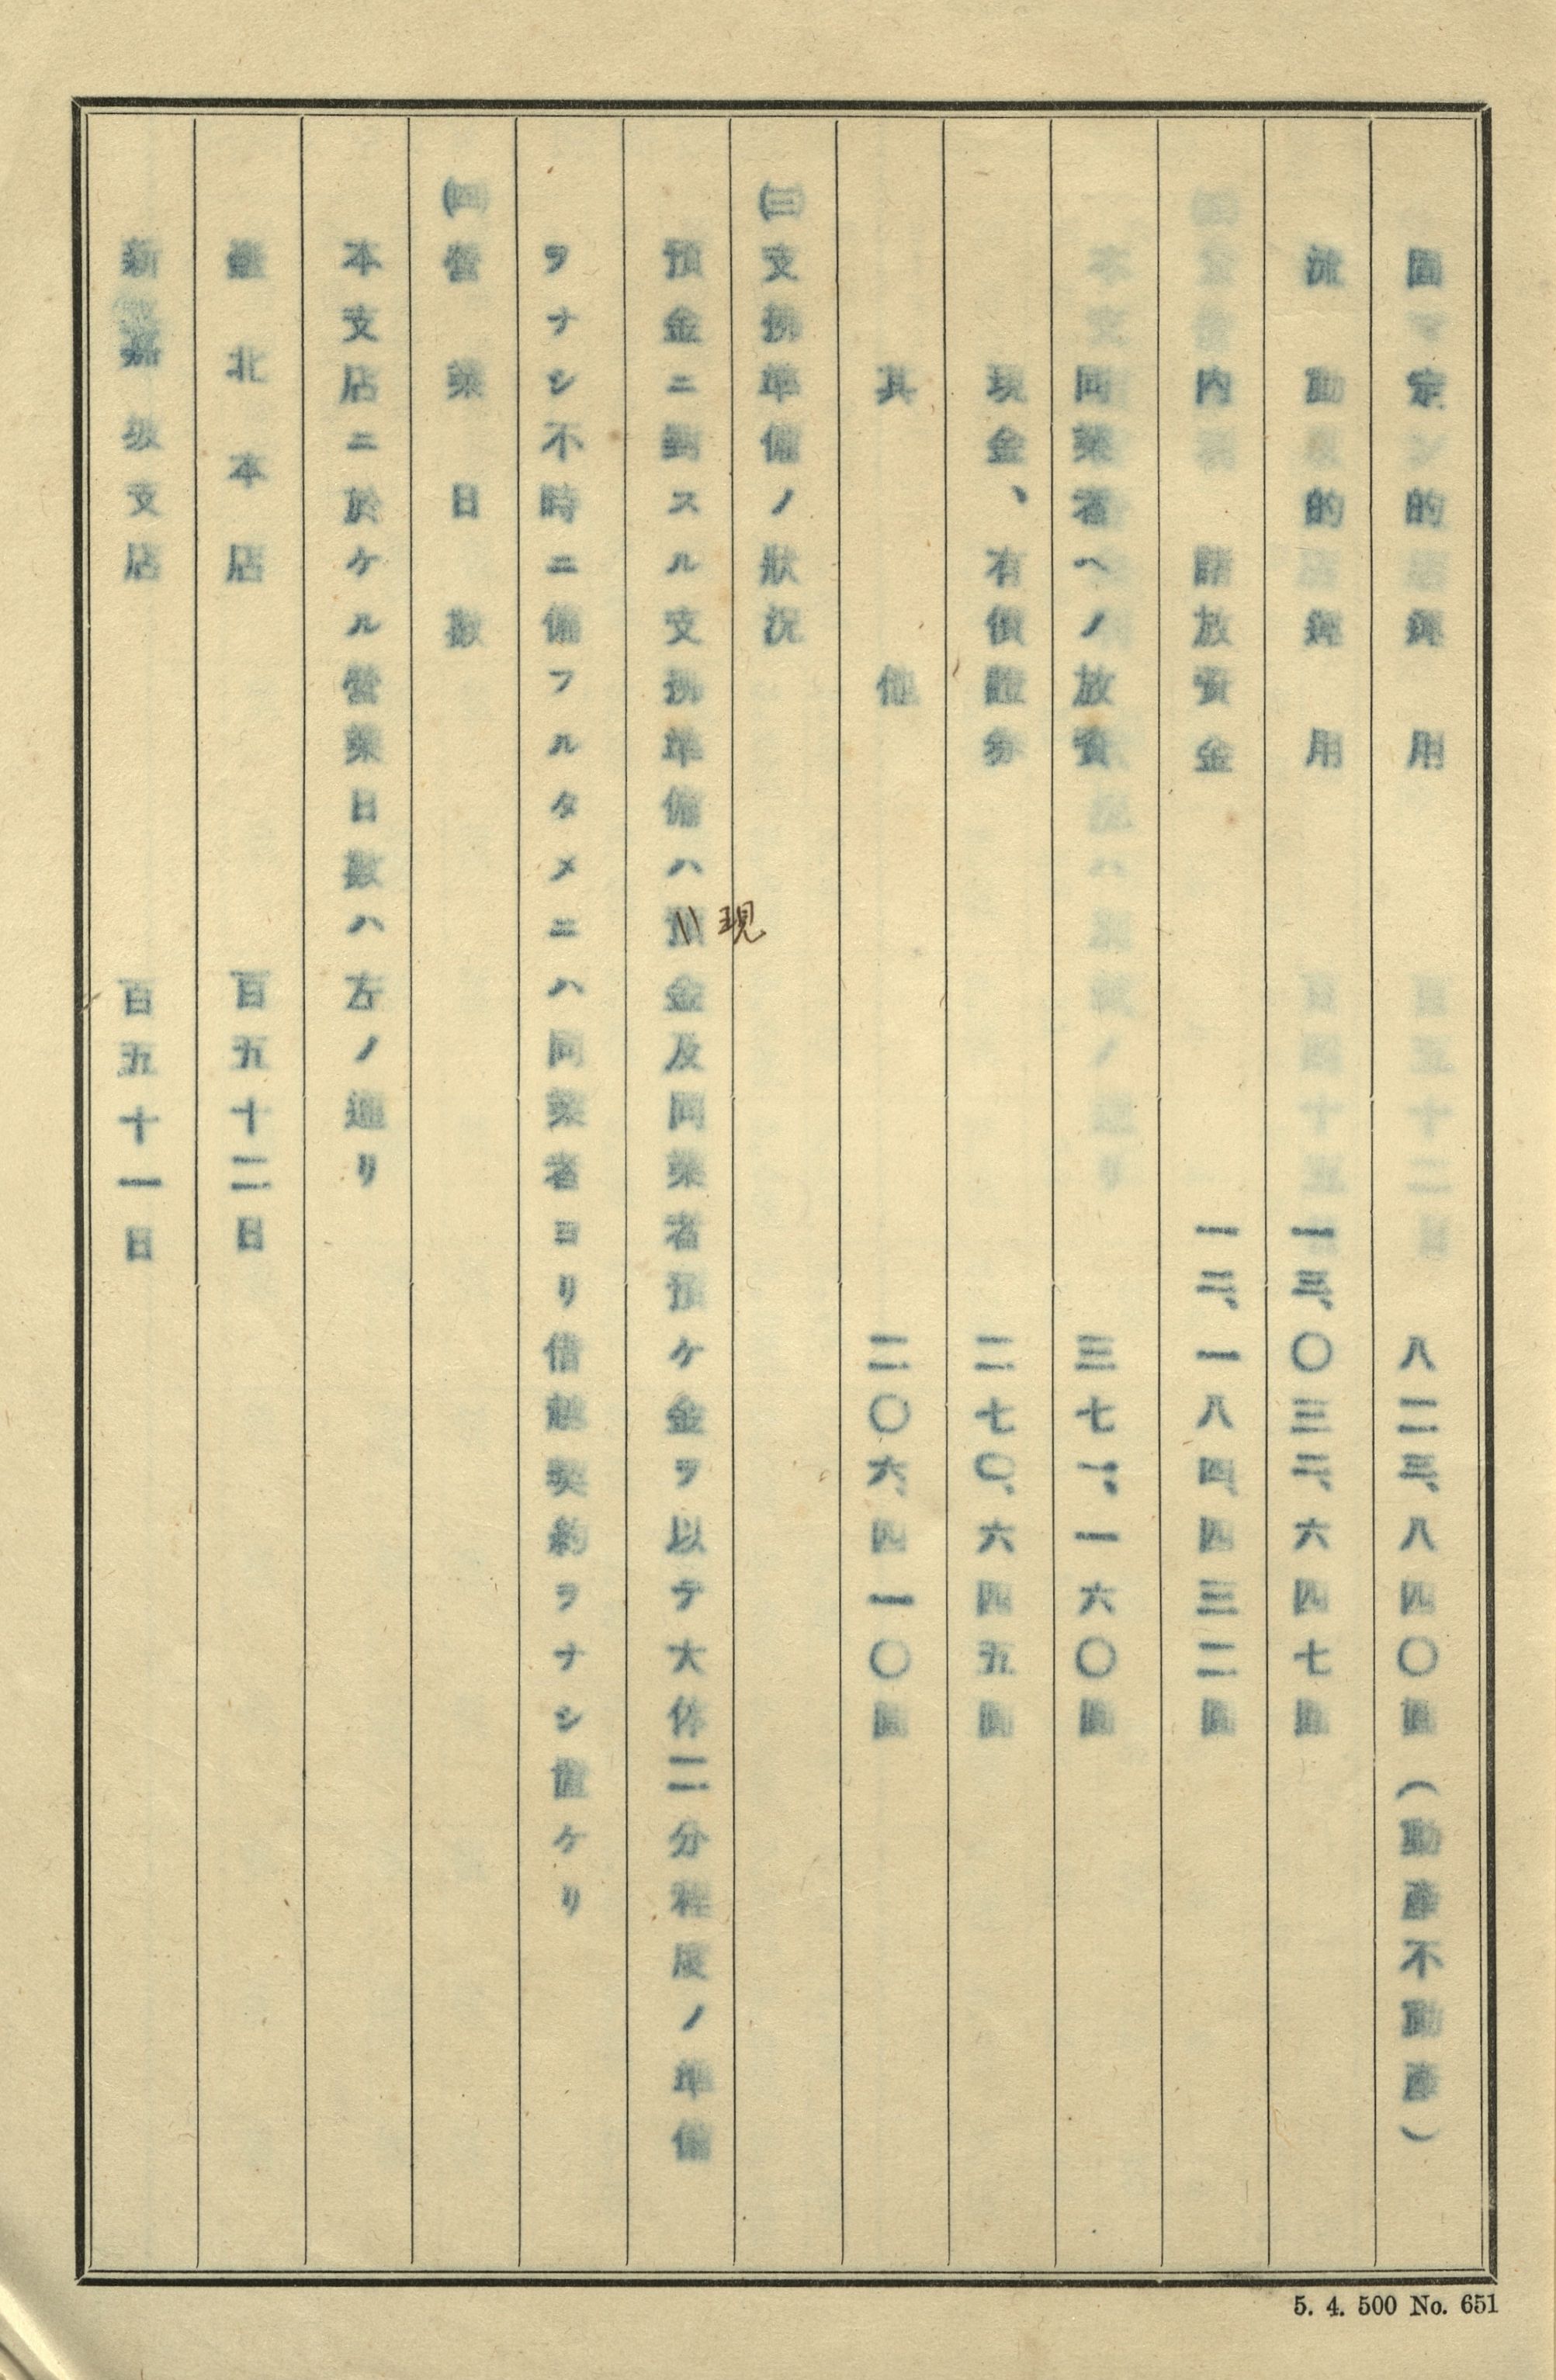 固定的運用 八二三、八四〇圓（動產不動產）
流動的運用 一三、〇三二、六四七圓
內 諸放資金 一二、一八四、四三二圓
同業者ヘノ放資 三七一、一六〇圓
現金、有價證券 二七〇、六四五圓
其他 二〇六、四一〇圓
(三)支拂準備ノ狀況
預金ニ對スル支拂準備ハ現金及同業者預ケ金ヲ以テ大体二分程度ノ準備
ヲナシ不時ニ備フルタメニハ同業者ヨリ借越契約ヲナシ置ケリ
(四)營業日數
本支店ニ於ケル營業日數ハ左ノ通リ
臺北本店 百五十二日
新嘉坡支店 百五十一日
5. 4. 500 No. 651